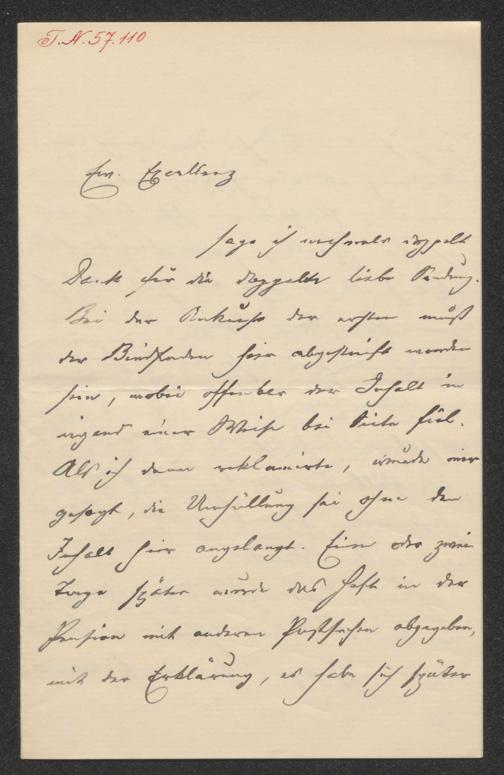 T.N. 57.110
Ew. Excellenz
sage ich nochmals doppelt
Dank für die doppelte liebe Sendung.
Bei der Ankunft der ersten muß
der Bindfaden hier abgestreift worden
sein, wobei offenbar der Inhalt in
irgend einer Weise bei Seite fiel.
Als ich dann reklamirte, wurde mir
gesagt, die Umhüllung sei ohne den
Inhalt hier angelangt. Einen oder zwei
Tage später wurde das Heft in der
Pension mit anderen Postsachen abgegeben,
mit der Erklärung, es habe sich später